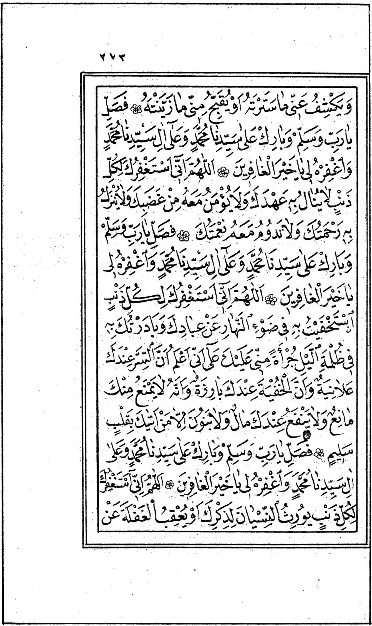 ٢٧٣
وَيَكْشِفُ عَنِّي مَا سَتَرْتَهُ اَوْ يُقَبِّحُ مِنِّي مَا زَيَّنْتَهُ ۞ فَصَلِّ
يَارَبِّ وَسَلِّمْ وَبَارِكْ عَلَى سَيِّدِنَا مُحَمَّدٍ وَعَلَى اٰلِ سَيِّدِنَا مُحَمَّدٍ
وَاغْفِرْهُ لِي يَاخَيْرَ الْغَافِرِينَ ۞ اَللّٰهُمَّ اِنِّي اَسْتَغْفِرُكَ لِكُلِّ
ذَنْبٍ لَا يُنَالُ بِهِ عَهْدُكَ وَلَا يُؤْمَنُ مَعَهُ مِنْ غَضَبِكَ وَلَا تَنْزِلُ
بِهِ رَحْمَتُكَ وَلَا تَدُومُ مَعَهُ نِعْمَتُكَ ۞ فَصَلِّ يَارَبِّ وَسَلِّمْ
وَبَارِكْ عَلَى سَيِّدِنَا مُحَمَّدٍ وَعَلَى اٰلِ سَيِّدِنَا مُحَمَّدٍ وَاغْفِرْهُ لِي
يَاخَيْرَ الْغَافِرِينَ ۞ اَللّٰهُمَّ اِنِّي اَسْتَغْفِرُكَ لِكُلِّ ذَنْبٍ
اِسْتَخْفَيْتُ بِهِ فِي ضَوْءِ النَّهَارِ عَنْ عِبَادِكَ وَبَارَزْتُكَ بِهِ
فِي ظُلْمَةِ الَّيْلِ جُرْأَةً مِنِّي عَلَيْكَ عَلَى اَنِّي اَعْلَمُ اَنَّ السِّرَّ عِنْدَكَ
عَلَانِيَةٌ وَاَنَّ الْخُفْيَةَ عِنْدَكَ بَارِزَةٌ وَاَنَّهُ لَا يَمْنَعُ مِنْكَ
مَانِعٌ وَلَا يَنْفَعُ عِنْدَكَ مَالٌ وَلَا بَنُونَ اِلَّا مَنْ اَتَيكَ بِقَلْبٍ
سَلِيمٍ ۞ فَصَلِّ يَارَبِّ وَسَلِّمْ وَبَارِكْ عَلَى سَيِّدِنَا مُحَمَّدٍ وَعَلَى
اٰلِ سَيِّدِنَا مُحَمَّدٍ وَاغْفِرْهُ لِي يَاخَيْرَ الْغَافِرِينَ ۞ اَللّٰهُمَّ اِنِّي اَسْتَغْفِرُكَ
لِكُلِّ ذَنْبٍ يُورِثُ النِّسْيَانَ لِذِكْرِكَ اَوْ يُعْقِبُ الْغَفْلَةَ عَنْ